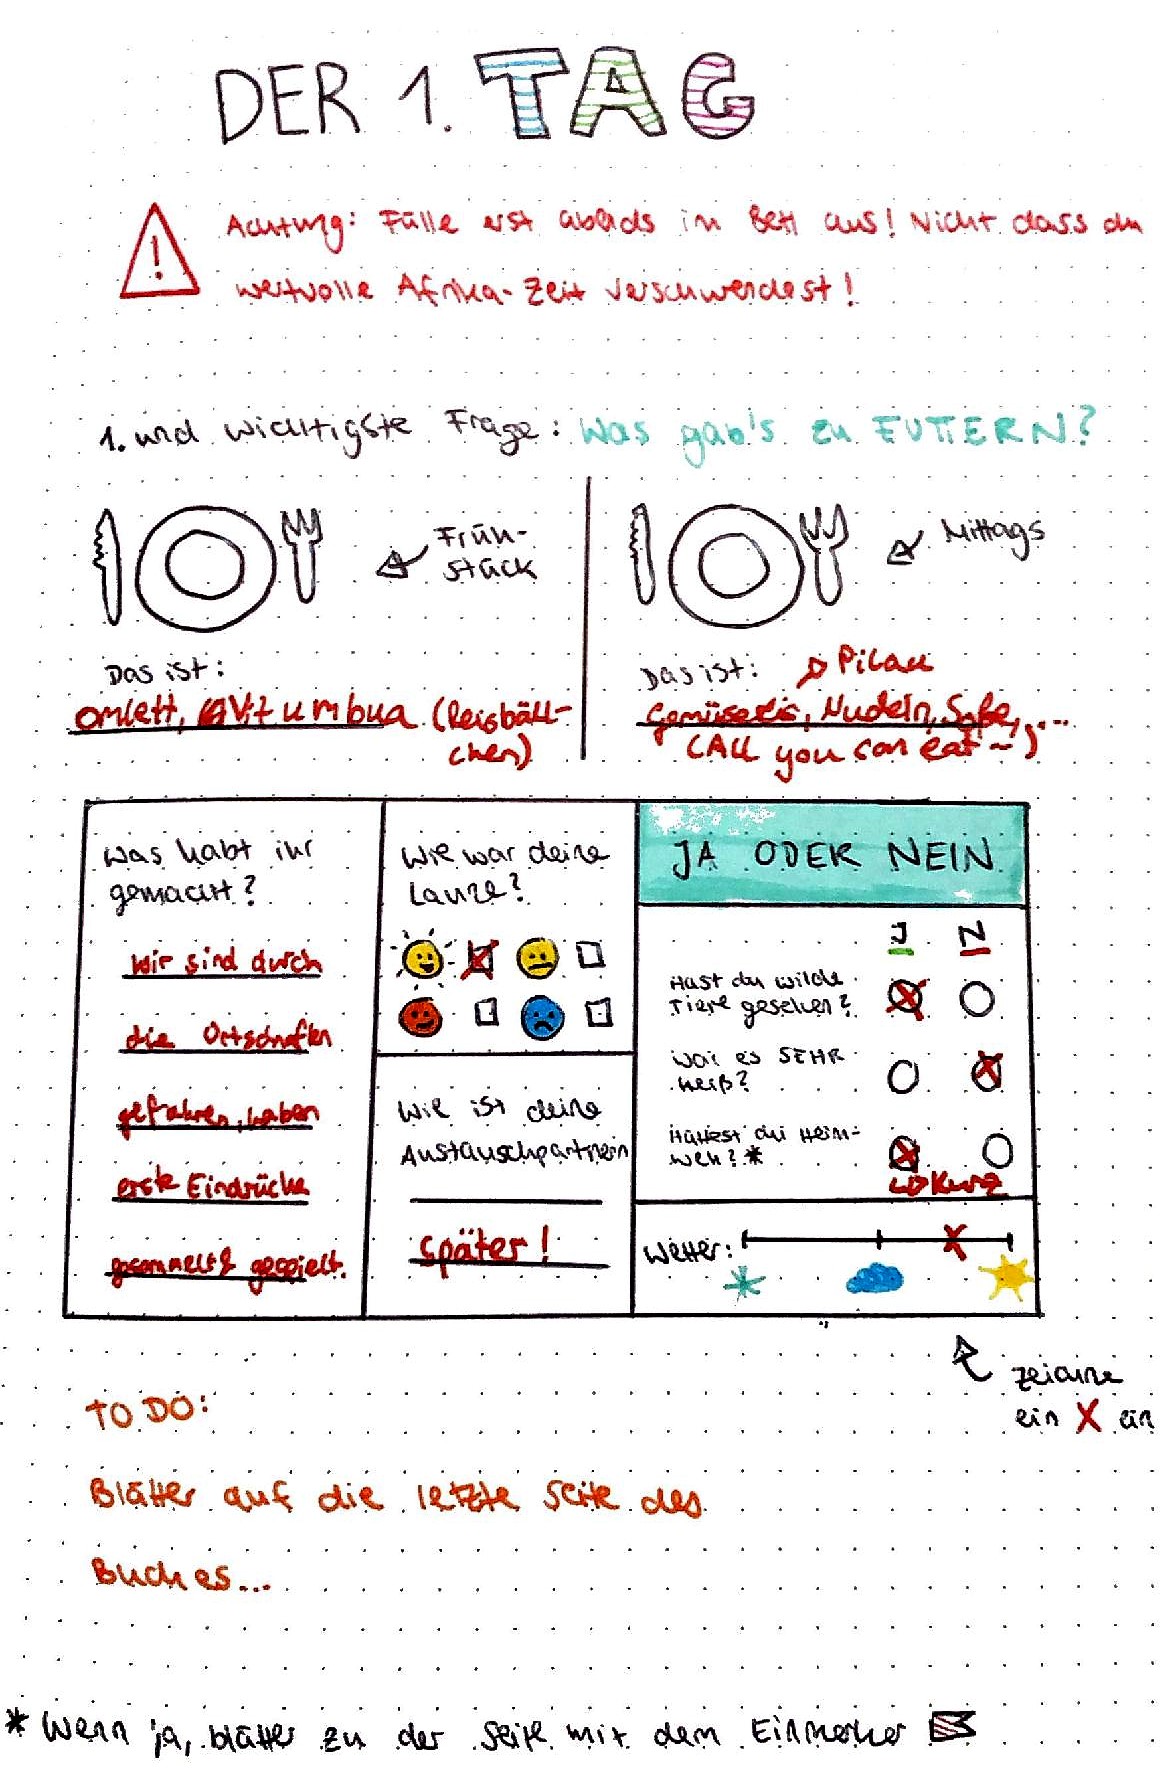 DER 1. TAG
Achtung: Fülle erst abends im Bett aus! Nicht dass du
wertvolle Afrika-Zeit verschwendest!
1. und wichtigste Frage: Was gab's zu FUTTERN?
Früh-
stück
Das ist:
omlett, Vitumbua (Reisbäll-
chen)
Mittags
Das ist: Pilau
Gemüsereis, Nudeln, Soße, ...
(All you can eat~)
Was habt ihr
gemacht?
Wir sind durch
die Ortschaften
gefahren, haben
erste Eindrücke
gesammelt & gespielt.
Wie war deine
Laune?
Wie ist deine
Austauschpartnerin
später!
JA ODER NEIN
J N
Hast du wilde
Tiere gesehen?
War es SEHR
heiß?
Hattest du Heim-
weh?*
Kurz
Wetter:
zeichne
ein X ein
TO DO:
Blätter auf die letzte Seite des
Buches...
* Wenn ja, blätter zu der Seite mit dem Einmerker